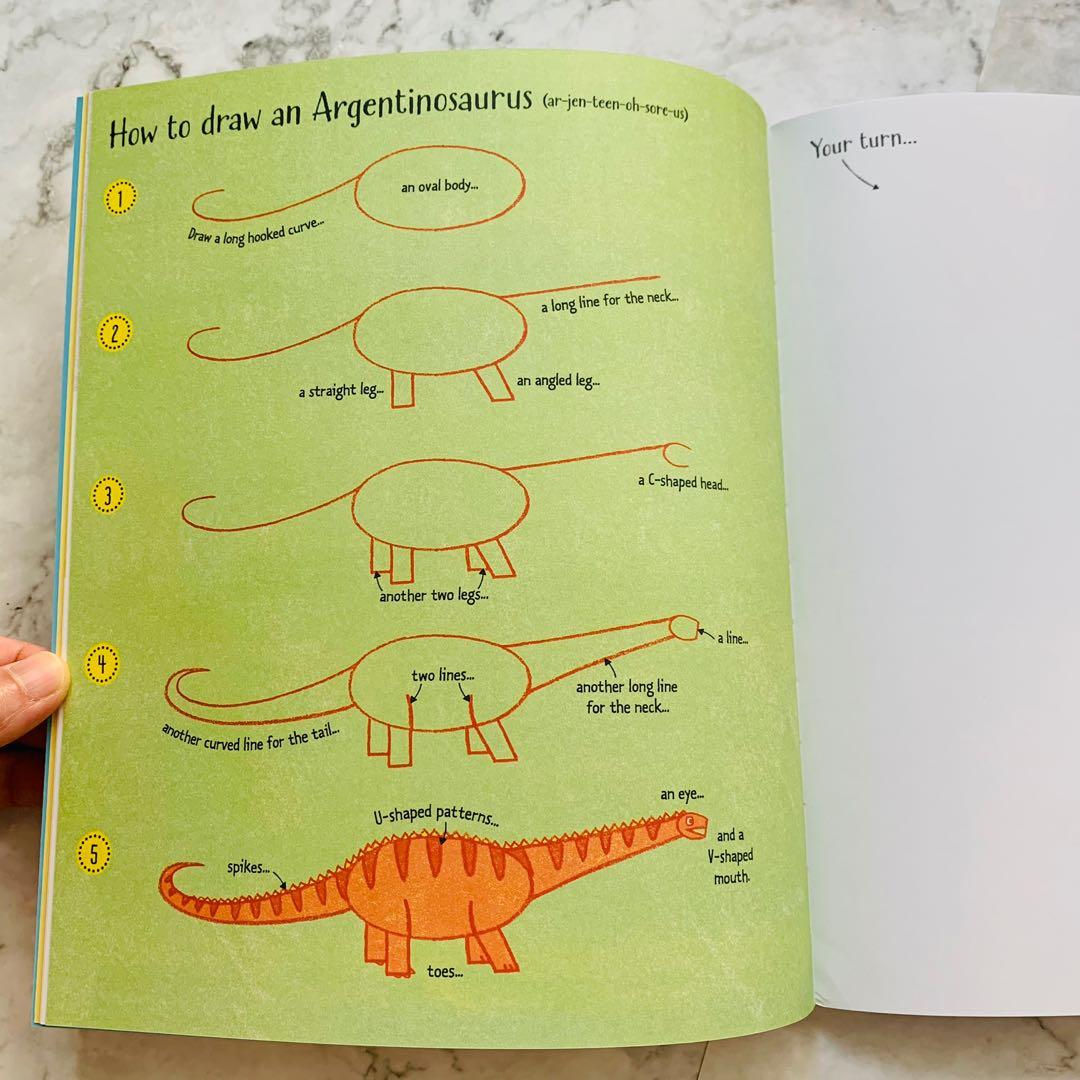 How to draw an Argentinosaurus (ar-jen-teen-oh-sore-us)
1
an oval body...
Draw a long hooked curve...
2
a long line for the neck...
a straight leg...
an angled leg...
3
a C-shaped head...
another two legs...
4
a line...
two lines...
another long line
for the neck...
another curved line for the tail...
5
an eye...
U-shaped patterns...
and a
V-shaped
mouth.
spikes...
toes...
Your turn...